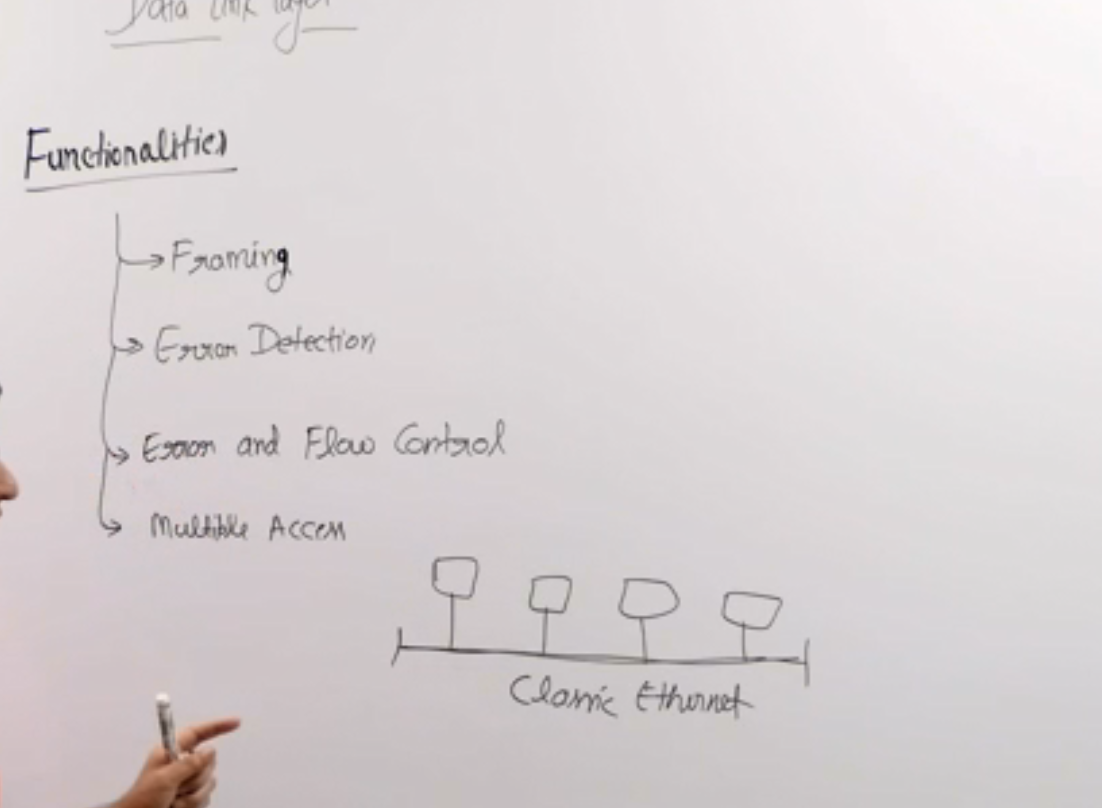 Data link layer
Functionalities
Framing
Error Detection
Error and Flow Control
Multible Access
Classic Ethernet